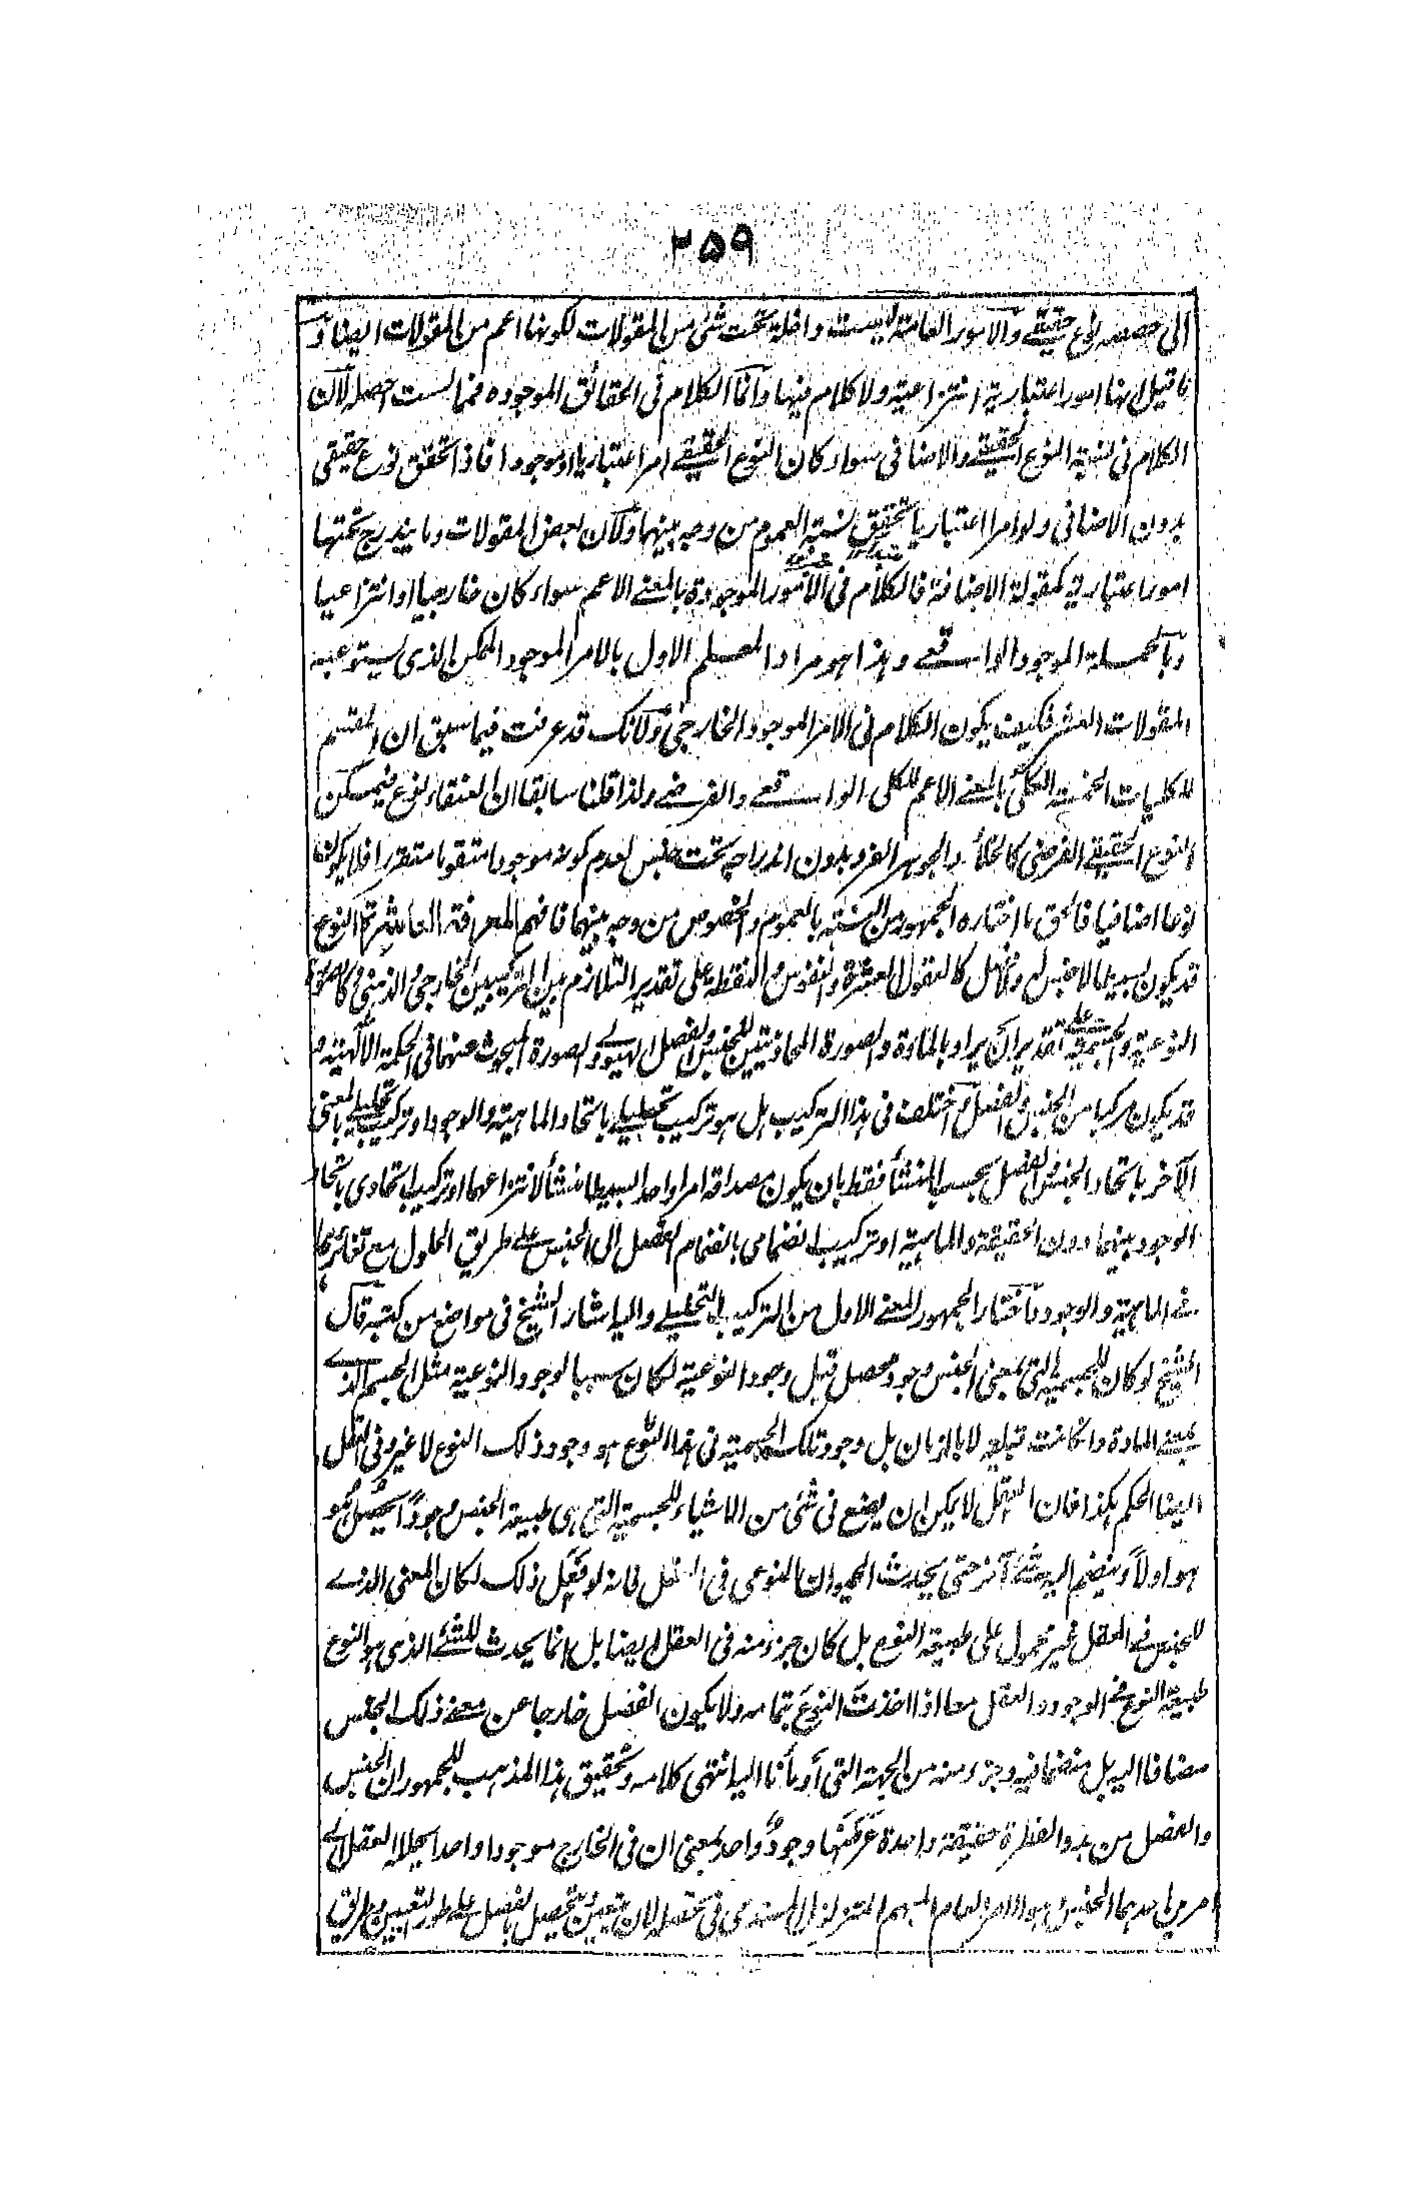 ۲۵۹
الى حصصه نوع حقيقي والامور العامة ليست داخلة تحت شئ من المقولات لكونها اعم من المقولات ايضا و
ما قيل انها امور اعتبارية انتزاعية ولا كلام فيها وانما الكلام في الحقائق الموجوده فمما لست احصله لان
الكلام في نسبة النوع الحقيقي والاضافي سواء كان النوع الحقيقي امرا اعتباريا او موجودا فاذا تحقق نوع حقيقي
بدون الاضافي ولو امرا اعتباريا تحقق نسبة العموم من وجه بينهما ولان بعض المقولات وما يندرج تحتها
امور اعتبارية كمقولة الاضافة فالكلام في الامور الموجودة بالمعنى الاعم سواء كان خارجيا او انتزاعيا
وبالجملة الموجود الواقعي وهذا هو مراد المعلم الاول بالامر الموجود الممكن الذي يستوعبه
المقولات العشر فكيف يكون الكلام في الامر الموجود الخارجي ولانك قد عرفت فيما سبق ان المقسم
للكليات الخمسة الكلي بالمعنى الاعم للكلي الواقعي والفرضي ولذا قلنا سابقا ان العنقاء نوع فيمكن
النوع الحقيقي الفرضي كالخلاء والجوهر الفرد بدون اندراجه تحت جنس لعدم كونه موجودا متقوما متقررا فلا يكون
نوعا اضافيا فالحق ما اختاره الجمهور من النسبة بالعموم والخصوص من وجه بينهما فافهم المعرفة العاشرة النوع
قد يكون بسيطا لا جنس له ولا فصل كالعقول العشرة والنفوس والنقطة على تقدير التلازم بين التركيبين الخارجي والذهني
النوعية والجسمية على تقدير ان يراد بالمادة والصورة المحاذيتين للجنس والفصل الهيولى والصورة المبحوث عنهما في الحكمة الالهية و
قد يكون مركبا من الجنس والفصل واختلف في هذا التركيب هل هو تركيب تحليلي باتحاد الماهية والوجود او تركيب تحليلي بالمعنى
الآخر باتحاد الجنس والفصل بحسب المنشأ فقط بان يكون مصداقه امرا واحدا بسيطا منشأ لانتزاعهما او تركيب اتحادي باتحاد
الوجود بينهما دون الحقيقة والماهية او تركيب انضمامي بانضمام الفصل الى الجنس على طريق الحلول مع تغايرهما
في الماهية والوجود فاختار الجمهور المعنى الاول من التركيب التحليلي واليه اشار الشيخ في مواضع من كتبه قال
الشيخ لو كان للجسمية التي بمعنى الجنس وجود محصل قبل وجود النوعية لكان سببا لوجود النوعية مثل الجسم الذي
بمعنى المادة وان كانت قبليه لا بالزمان بل وجود تلك الجسمية في هذا النوع هو وجود ذلك النوع لا غير وفي العقل
ايضا الحكم هكذا فان العقل لا يمكن ان يضع في شئ من الاشياء للجسمية التي هي طبيعة الجنس وجودا يحصل هو
هو اولا وينضم اليه شئ آخر حتى يحدث الحيوان النوعي في العقل فانه لو فعل ذلك لكان المعنى الذي
للجنس في العقل غير محمول على طبيعة النوع بل كان جزء منه في العقل ايضا بل انما يحدث للشئ الذي هو النوع
طبيعة النوع في الوجود والعقل معا اذا اخذت النوع بتمامه ولا يكون الفصل خارجا عن معنى ذلك الجنس
مضافا اليه بل متضمنا فيه وجزء منه من الجهة التي أومأنا اليه انتهى كلامه وتحقيق هذا المذهب للجمهور ان الجنس
والفصل من بدو الفطرة حقيقة واحدة وجود واحد بمعنى ان في الخارج موجودا واحدا يحلله العقل الى
امرين احدهما الجنس وهو الامر العام المبهم المتزلزل المستدعي في تحصله لان يتعين ويتحصل بالفصل على طور التعيين وطريق